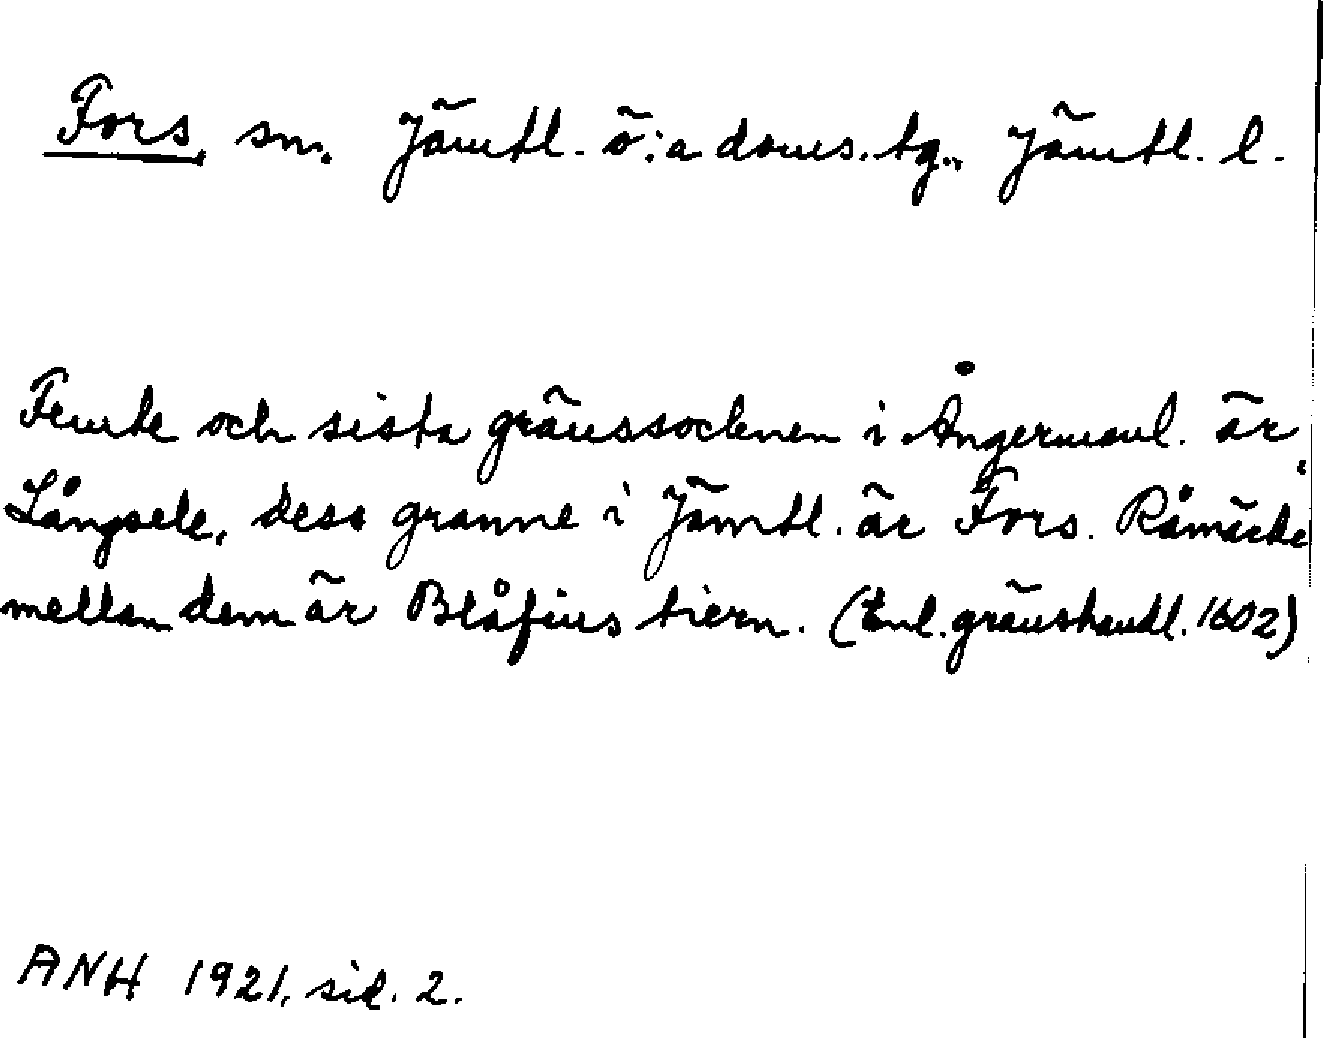 Fors, sn. Jämtl. ö:a doms. tg., Jämtl. l.
Femte och sista gränssocknen i Ångermanl. är
Långsele, dess granne i Jämtl. är Fors. Råmärke
mellan dem är Blåfins tiern. (Enl. gränshandl. 1602)
ANH 1921, sid. 2.